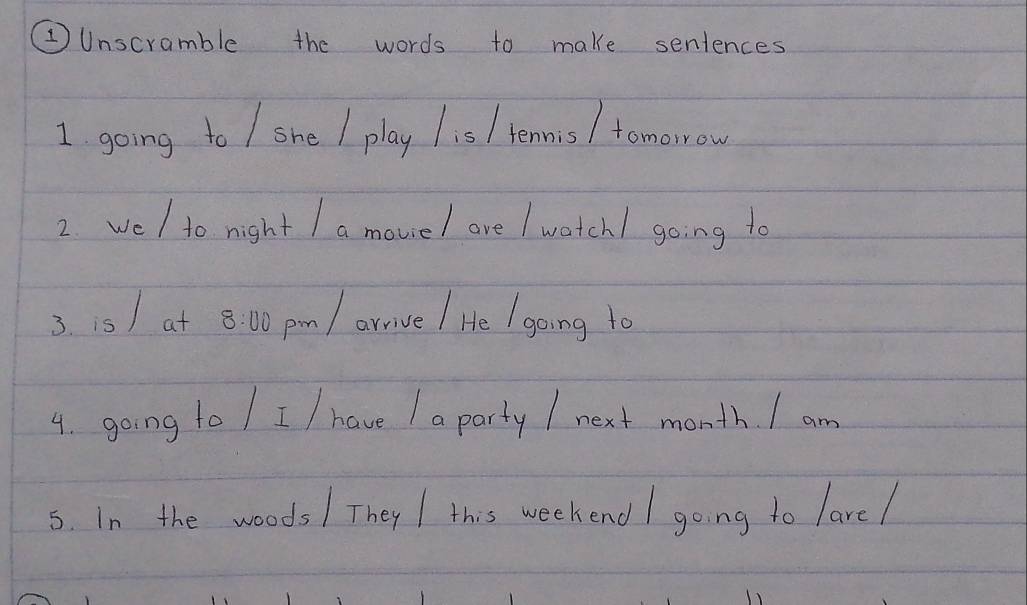 ① Unscramble the words to make sentences
1. going to / she / play / is / tennis / tomorrow
2. we / to night / a movie / are / watch / going to
3. is / at 8:00 pm / arrive / He / going to
4. going to / I / have / a party / next month. / am
5. In the woods / They / this weekend / going to / are /